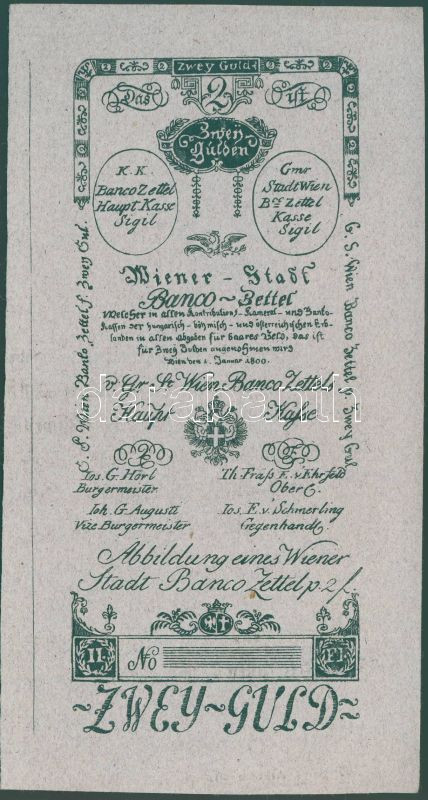 Zwey Guld:
Das 2 ist
Zwey
Gulden
K. K.
Banco Zettel
Haupt Kasse
Sigil
Gmr
Stadt Wien
Bco Zettel
Kasse
Sigil
Wiener - Stadt
Banco ~ Zettel
Welcher in allen Kontributions- Kameral- und Banko-
Kassen der hungarisch- böhmisch- und österreichischen Erb-
landen in allen Abgaben für baares Geld, das ist
für Zwey Gulden angenohmen wird
Wien den 1. Januar 1800.
v Gr. St. Wien. Banco Zettels
Haupt Kasse
G. S. Wien Banko Zettel p. Zwey Gul.
G. S. Wien Banco Zettel p Zwey Gul
Ios. G. Hörl
Burgermeister
Th. Fraß E. v. Ehrfeld
Ober C.
Ioh. G. Augusti
Vize Burgermeister
Ios. E. v. Schmerling
Gegenhandl
Abbildung eines Wiener
Stadt Banco Zettel p. 2 f.
II No FL
~ZWEY~GULD~
darabanth